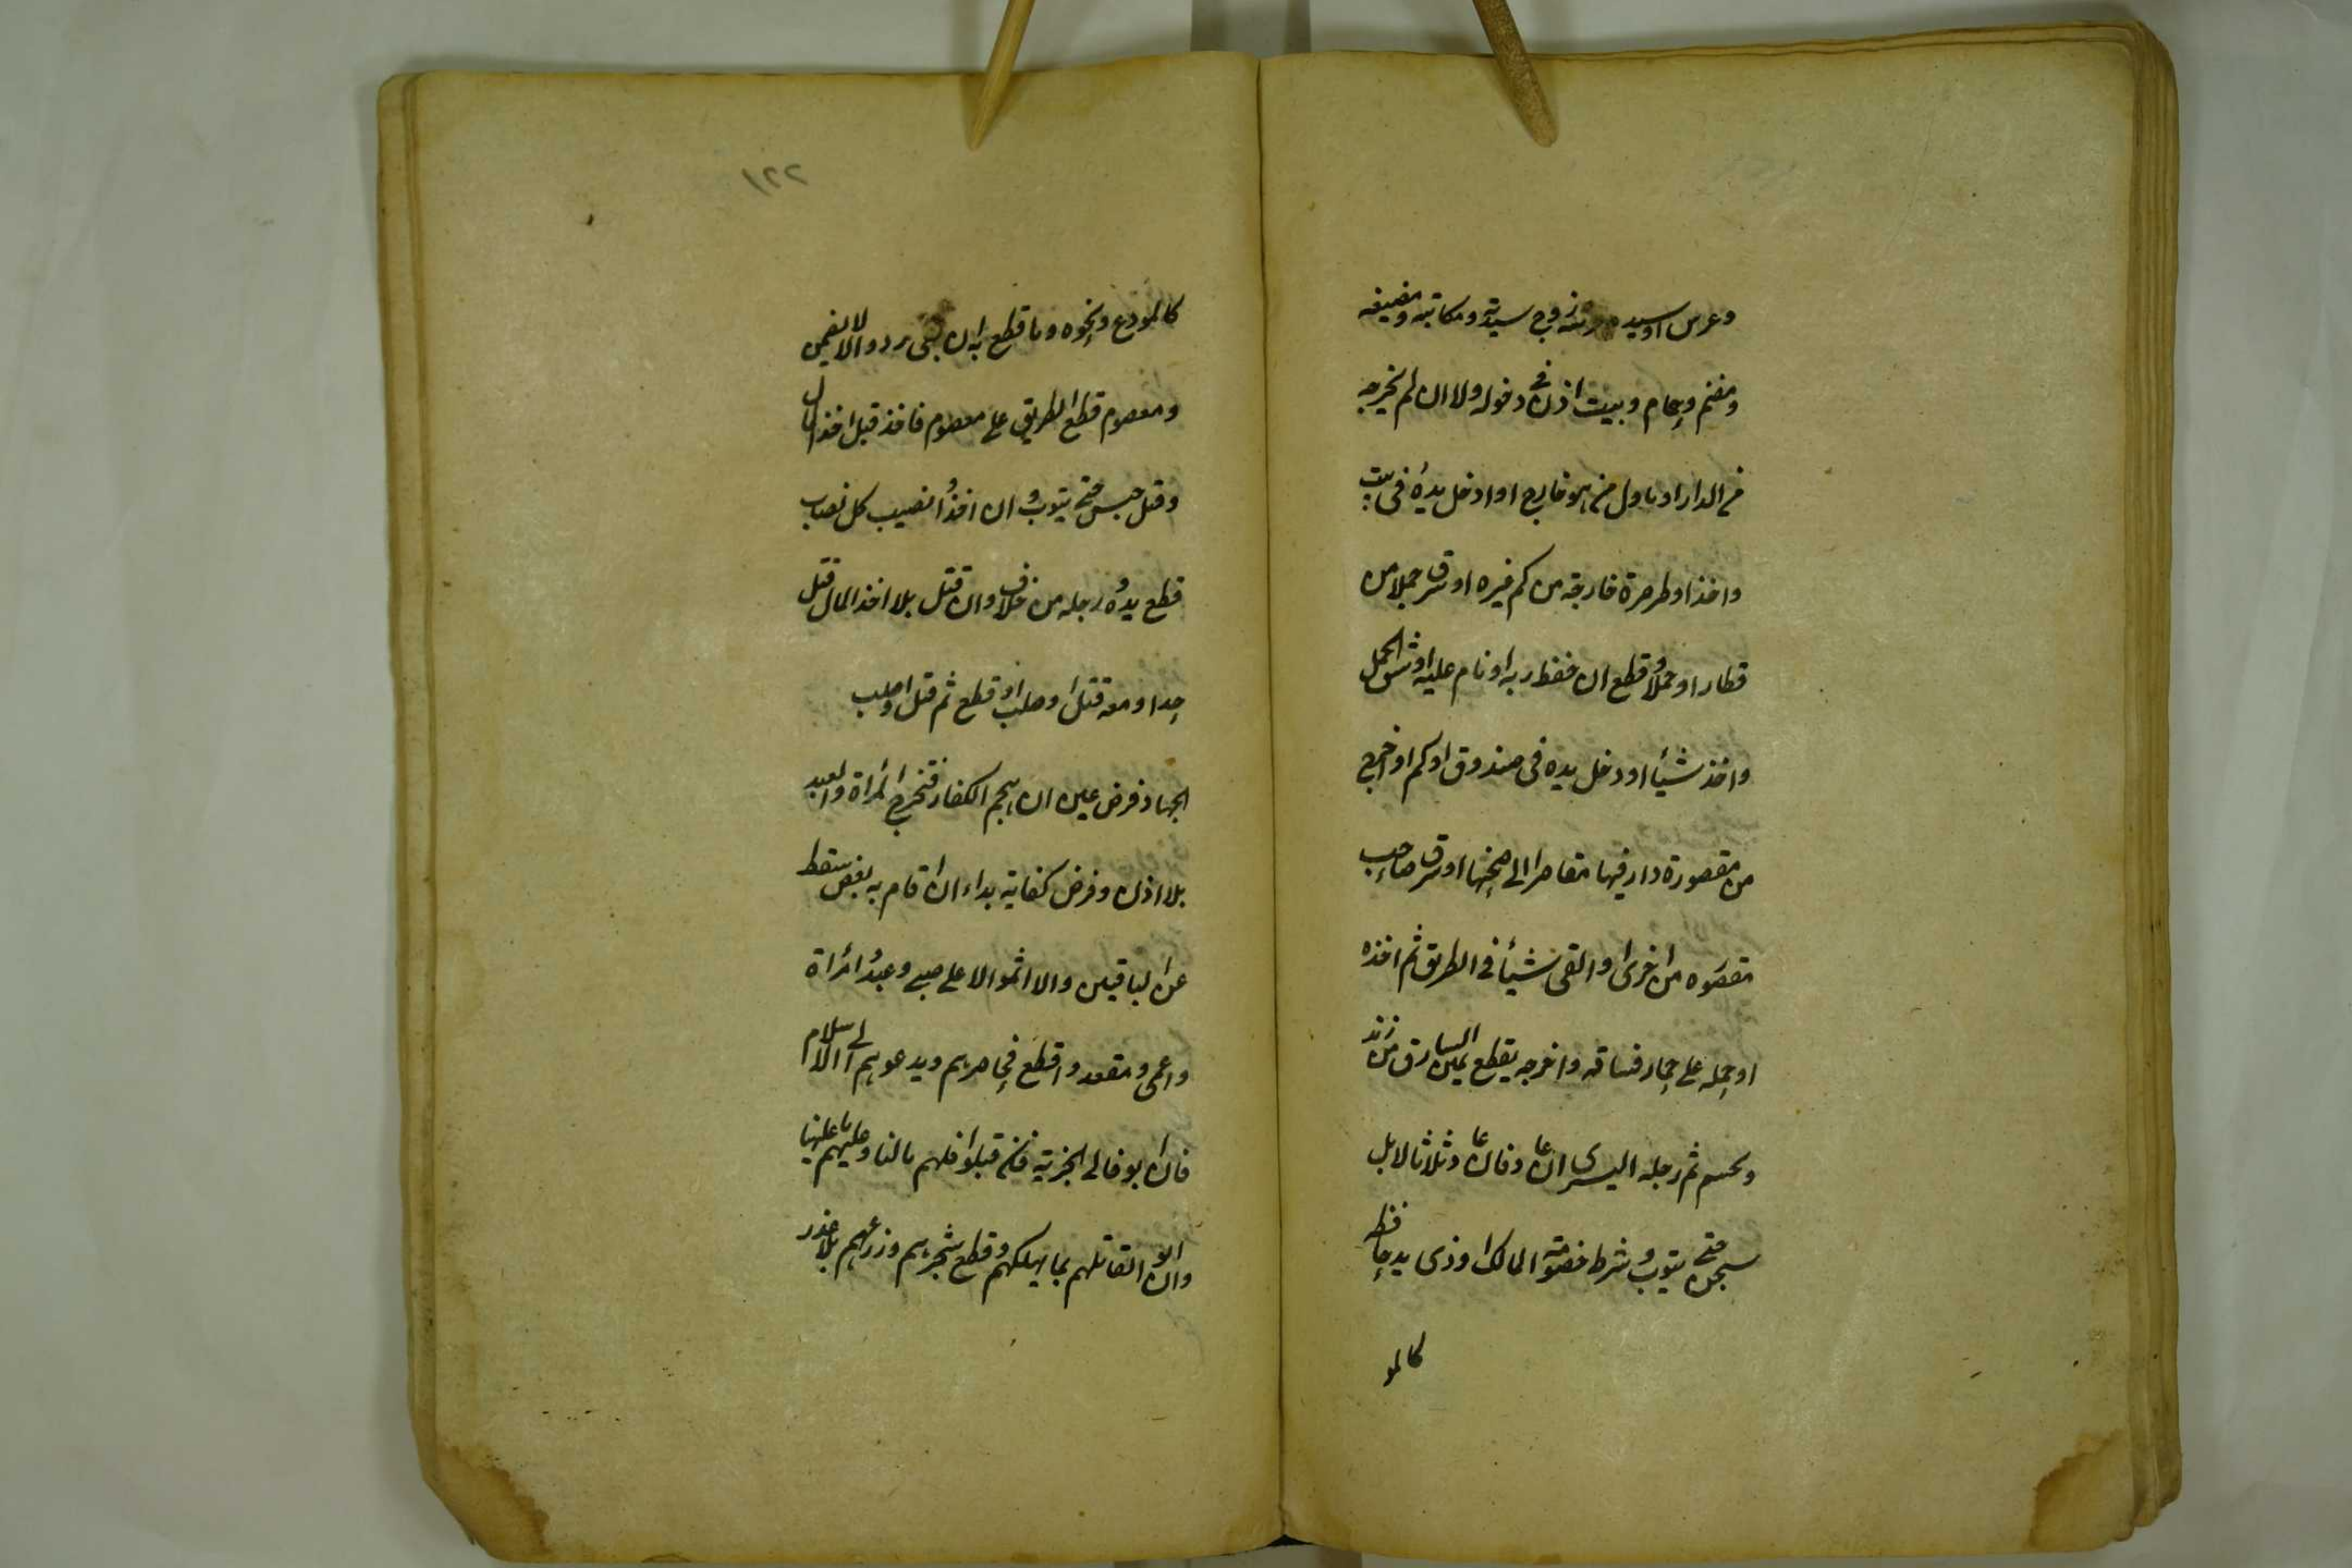 وعرس او سيده وعرسه زوج سيدته ومكاتبه ومضيفه
ومغنم وحمام وبيت اذن في دخوله ولا ان لم يخرجه
من الدار او ناول من هو خارج او ادخل يده في بيت
واخذ او طر صرة خارجة من كم غيره او سرق جملا من
قطار او حملا وقطع ان حفظ ربه او نام عليه او شق الحمل
واخذ شيئا او دخل يده في صندوق او كم او اخرج
من مقصورة دار فيها مقاصر الى صحنها او سرق صاحب
مقصوره من اخرى او القى شيئا في الطريق ثم اخذه
او حمله على حمار فساقه واخرجه يقطع يمين السارق من زند
وتحسم ثم رجله اليسرى ان عاد فان عاد ثالثا لا بل
سجن حتى يتوب وشرط خصومة المالك او ذى يد حافظ
كالمو
١٢٢
كالمودع ونحوه وما قطع به ان بقى رد والا لا يضمن
ومعصوم قطع الطريق على معصوم فاخذ قبل اخذ المال
وقتل حبس حتى يتوب وان اخذ نصيب كل نصاب
قطع يده ورجله من خلاف وان قتل بلا اخذ المال قتل
حدا ومعه قتل او صلب او قطع ثم قتل او صلب
الجهاد فرض عين ان هجم الكفار فتخرج المرأة والعبد
بلا اذن وفرض كفاية بداء ان قام به بعض سقط
عن الباقين والا اثموا لا على صبى وعبد وامرأة
واعمى ومقعد واقطع فى حاصرهم ويدعوهم الى الاسلام
فان ابو فالى الجزية فان قبلوا فلهم مالنا وعليهم ما علينا
وان ابوا لقاتلهم بما يهلكهم وقطع شجرهم وزرعهم بلا غدر